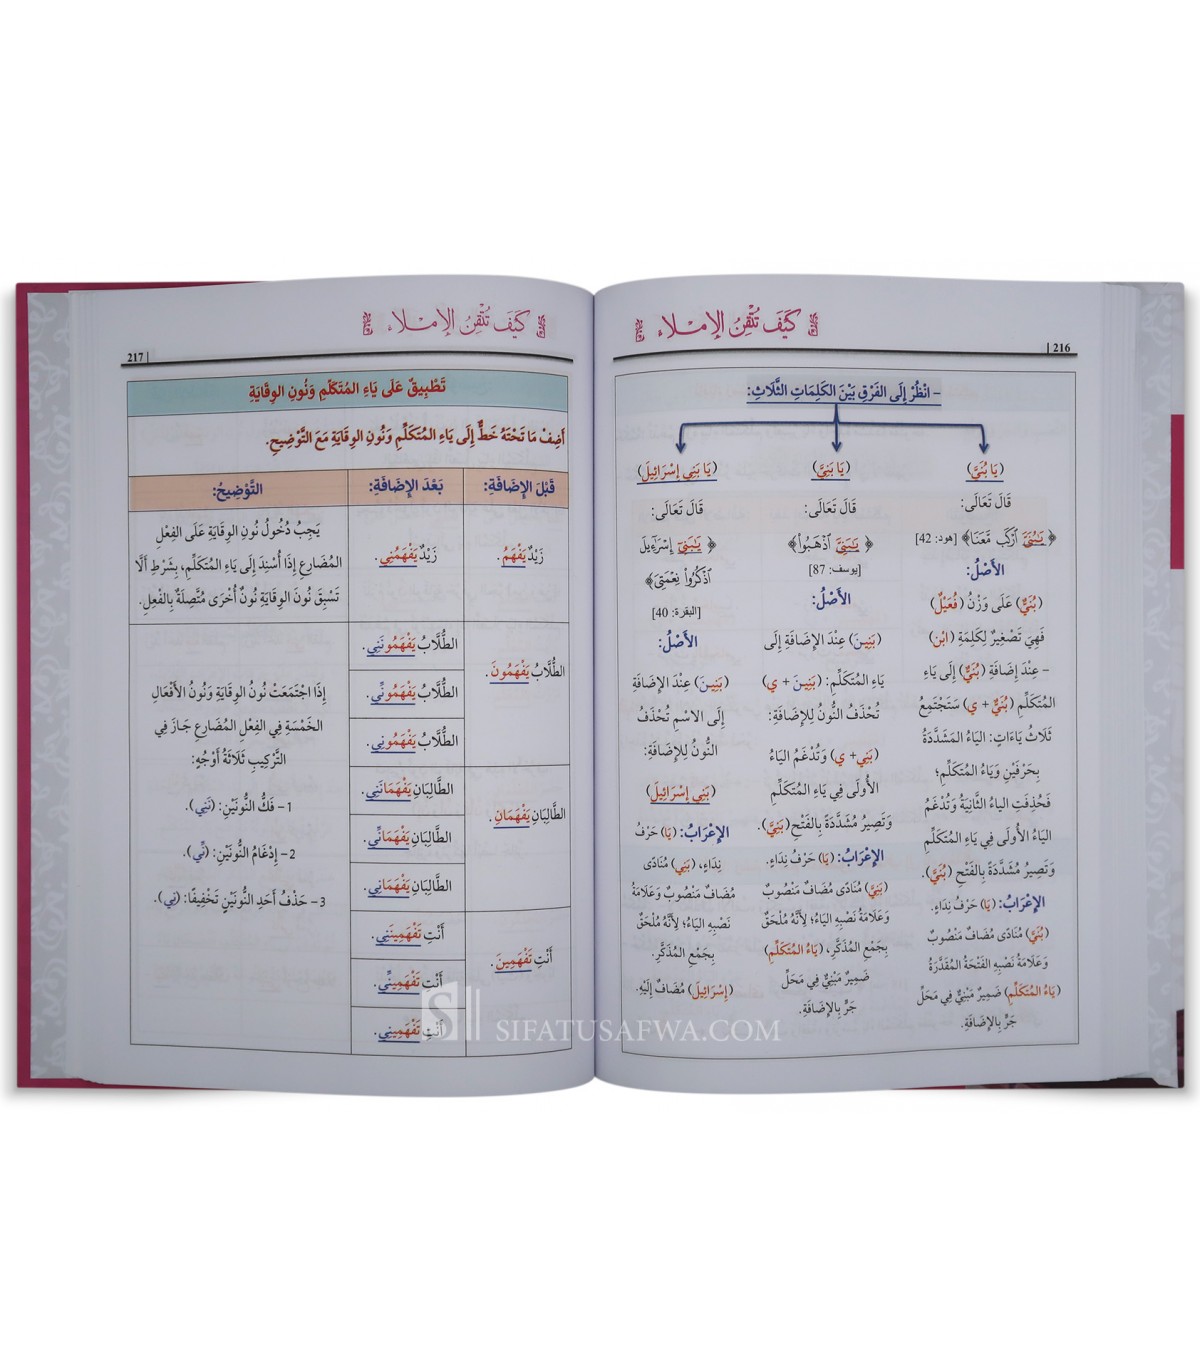 كَيْفَ تُتْقِنُ الإِمْلَاءَ
216
– انْظُرْ إِلَى الفَرْقِ بَيْنَ الكَلِمَاتِ الثَّلَاثِ:
(يَا بُنَيَّ)
قَالَ تَعَالَى:
﴿ يَٰبُنَيَّ ٱرْكَب مَّعَنَا﴾ [هود: 42]
الأَصْلُ:
(بُنَيٌّ) عَلَى وَزْنُ (فُعَيْلٌ)
فَهِيَ تَصْغِيرٌ لِكَلِمَةِ (ابْن)
– عِنْدَ إِضَافَةِ (بُنَيٌّ) إِلَى يَاءِ
المُتَكَلِّمِ (بُنَيٌّ + ي) سَتَجْتَمِعُ
ثَلَاثُ يَاءَاتٍ: اليَاءُ المَشَدَّدَةُ
بِحَرْفَيْنِ وَيَاءُ المُتَكَلِّمِ؛
فَحُذِفَتِ الياءُ الثَّانِيَةُ وَتُدْغَمُ
اليَاءُ الأُولَى فِي يَاءِ المُتَكَلِّمِ
وَتَصِيرُ مُشَدَّدَةً بِالفَتْحِ (بُنَيَّ).
الإِعْرَابُ: (يَا) حَرْفُ نِدَاءٍ.
(بُنَيَّ) مُنَادًى مُضَافٌ مَنْصُوبٌ
وَعَلَامَةُ نَصْبِهِ الفَتْحَةُ المُقَدَّرَةُ
(يَاءُ المُتَكَلِّمِ) ضَمِيرٌ مَبْنِيٌّ فِي مَحَلِّ
جَرٍّ بِالإِضَافَةِ.
(يَا بَنِيَّ)
قَالَ تَعَالَى:
﴿ يَٰبَنِيَّ ٱذْهَبُواْ﴾
[يوسف: 87]
الأَصْلُ:
(بَنِينَ) عِنْدَ الإِضَافَةِ إِلَى
يَاءِ المُتَكَلِّمِ: (بَنِينَ + ي)
تُحْذَفُ النُّونُ لِلإِضَافَةِ:
(بَنِي+ ي) وَتُدْغَمُ اليَاءُ
الأُولَى فِي يَاءِ المُتَكَلِّمِ
وَتَصِيرُ مُشَدَّدَةً بِالفَتْحِ(بَنِيَّ).
الإِعْرَابُ: (يَا) حَرْفُ نِدَاءٍ.
(بَنِيَّ) مُنَادًى مُضَافٌ مَنْصُوبٌ
وَعَلَامَةُ نَصْبِهِ اليَاءُ؛ لِأَنَّهُ مُلْحَقٌ
بِجَمْعِ المُذَكَّرِ، (يَاءُ المُتَكَلِّمِ)
ضَمِيرٌ مَبْنِيٌّ فِي مَحَلِّ
جَرٍّ بِالإِضَافَةِ.
(يَا بَنِي إِسْرَائِيلَ)
قَالَ تَعَالَى:
﴿ يَٰبَنِيٓ إِسْرَٰٓءِيلَ
ٱذْكُرُواْ نِعْمَتِيَ﴾
[البقرة: 40]
الأَصْلُ:
(بَنِينَ) عِنْدَ الإِضَافَةِ
إِلَى الاسْمِ تُحْذَفُ
النُّونُ لِلإِضَافَةِ:
(بَنِي إِسْرَائِيلَ)
الإِعْرَابُ: (يَا) حَرْفُ
نِدَاءٍ، (بَنِي) مُنَادًى
مُضَافٌ مَنْصُوبٌ وَعَلَامَةُ
نَصْبِهِ اليَاءُ؛ لِأَنَّهُ مُلْحَقٌ
بِجَمْعِ المُذَكَّرِ.
(إِسْرَائِيلَ) مُضَافٌ إِلَيْهِ.
كَيْفَ تُتْقِنُ الإِمْلَاءَ
217
تَطْبِيقٌ عَلَى يَاءِ المُتَكَلِّمِ وَنُونِ الوِقَايَةِ
أَضِفْ مَا تَحْتَهُ خَطٌّ إِلَى يَاءِ المُتَكَلِّمِ وَنُونِ الوِقَايَةِ مَعَ التَّوْضِيحِ.
قَبْلَ الإِضَافَةِ: بَعْدَ الإِضَافَةِ: التَّوْضِيحُ:
زَيْدٌ يَفْهَمُ.
زَيْدٌ يَفْهَمُنِي.
يَجِبُ دُخُولُ نُونِ الوِقَايَةِ عَلَى الفِعْلِ
المُضَارِعِ إِذَا أُسْنِدَ إِلَى يَاءِ المُتَكَلِّمِ، بِشَرْطِ أَلَّا
تَسْبِقَ نُونَ الوِقَايَةِ نُونٌ أُخْرَى مُتَّصِلَةٌ بِالفِعْلِ.
الطُّلَّابُ يَفْهَمُونَ.
الطُّلَّابُ يَفْهَمُونَنِي.
الطُّلَّابُ يَفْهَمُونِّي.
الطُّلَّابُ يَفْهَمُونِي.
الطَّالِبَانِ يَفْهَمَانِ.
الطَّالِبَانِ يَفْهَمَانَنِي.
الطَّالِبَانِ يَفْهَمَانِّي.
الطَّالِبَانِ يَفْهَمَانِي.
أَنْتِ تَفْهَمِينَ.
أَنْتِ تَفْهَمِينَنِي.
أَنْتِ تَفْهَمِينِّي.
أَنْتِ تَفْهَمِينِي.
إِذَا اجْتَمَعَتْ نُونُ الوِقَايَةِ وَنُونُ الأَفْعَالِ
الخَمْسَةِ فِي الفِعْلِ المُضَارِعِ جَازَ فِي
التَّرْكِيبِ ثَلَاثَةُ أَوْجُهٍ:
1– فَكُّ النُّونَيْنِ: (نَنِي).
2– إِدْغَامُ النُّونَيْنِ: (نِّي).
3– حَذْفُ أَحَدِ النُّونَيْنِ تَخْفِيفًا: (نِي).
SIFATUSAFWA.COM